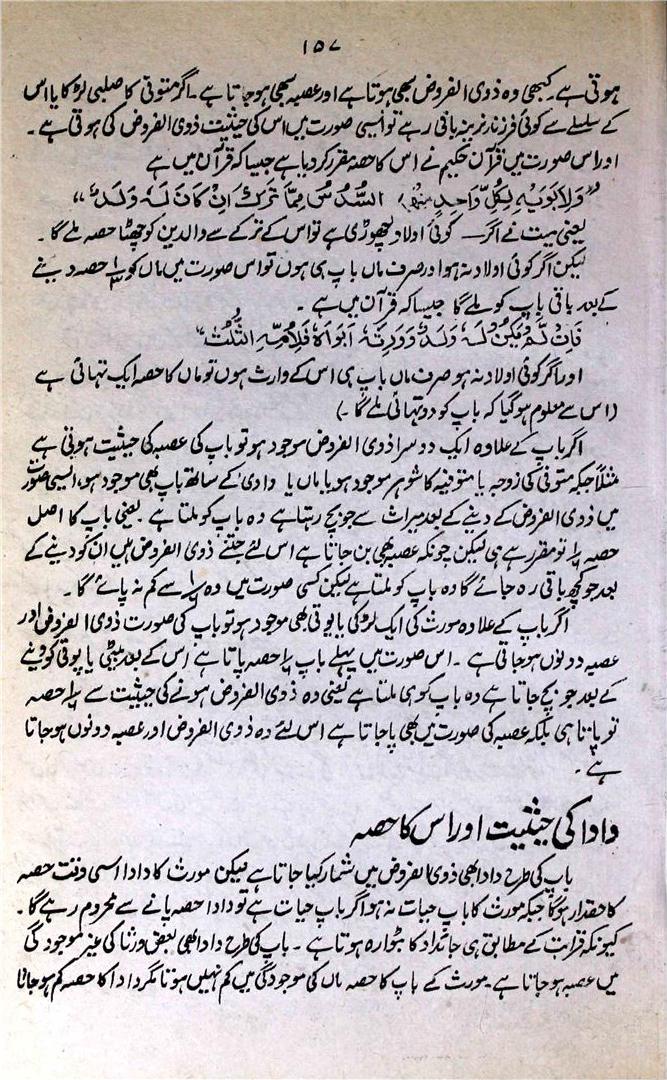 ۱۵۷
ہوتی ہے۔ کبھی وہ ذوی الفروض بھی ہوتا ہے اور عصبہ بھی ہوجاتا ہے۔ اگر متوفی کا صلبی لڑکا یا اس
کے سلسلے سے کوئی فرزند نرینہ باقی رہے تو ایسی صورت میں اس کی حیثیت ذوی الفروض کی ہوتی ہے۔
اور اس صورت میں قرآن حکیم نے اس کا حصہ مقرر کردیا ہے جیسا کہ قرآن میں ہے
”وَلِاَبَوَیْہِ لِکُلِّ وَّاحِدٍ مِّنْھُمَا السُّدُسُ مِمَّا تَرَکَ اِنْ کَانَ لَہٗ وَلَدٌ“
یعنی میت نے اگر — کوئی اولاد چھوڑی ہے تو اس کے ترکے سے والدین کو چھٹا حصہ ملے گا۔
لیکن اگر کوئی اولاد نہ ہو اور صرف ماں باپ ہی ہوں تو اس صورت میں ماں کو ۱/۳ حصہ دینے
کے بعد باقی باپ کو ملے گا جیسا کہ قرآن میں ہے۔
فَاِنْ لَّمْ یَکُنْ لَّہٗ وَلَدٌ وَّوَرِثَہٗ اَبَوَاہُ فَلِاُمِّہِ الثُّلُثُ“
اور اگر کوئی اولاد نہ ہو صرف ماں باپ ہی اس کے وارث ہوں تو ماں کا حصہ ایک تہائی ہے
(اس سے معلوم ہوگیا کہ باپ کو دو تہائی ملے گا۔)
اگر باپ کے علاوہ ایک دوسرا ذوی الفروض موجود ہو تو باپ کی عصبہ کی حیثیت ہوتی ہے
مثلاً جبکہ متوفی کی زوجہ یا متوفیہ کا شوہر موجود ہو یا ماں یا دادی کے ساتھ باپ بھی موجود ہو، ایسی صورت
میں ذوی الفروض کے دینے کے بعد میراث سے جو بچ رہتا ہے وہ باپ کو ملتا ہے یعنی باپ کا اصل
حصہ ۱/۶ تو مقرر ہے ہی لیکن چونکہ عصبہ بھی بن جاتا ہے اس لئے جتنے ذوی الفروض ہیں ان کو دینے کے
بعد جو کچھ باقی رہ جائے گا وہ باپ کو ملتا ہے لیکن کسی صورت میں وہ ۱/۶ سے کم نہ پائے گا۔
اگر باپ کے علاوہ مورث کی ایک لڑکی یا پوتی بھی موجود ہو تو باپ کی صورت ذوی الفروض اور
عصبہ دونوں ہوجاتی ہے۔ اس صورت میں پہلے باپ ۱/۶ حصہ پاتا ہے اس کے بعد بیٹی یا پوتی کو دینے
کے بعد جو بچ جاتا ہے وہ باپ کو ہی ملتا ہے یعنی وہ ذوی الفروض ہونے کی حیثیت سے ۱/۶ حصہ
تو پاتا ہی بلکہ عصبہ کی صورت میں بھی پاجاتا ہے اس لئے وہ ذوی الفروض اور عصبہ دونوں ہوجاتا
ہے۔
دادا کی حیثیت اور اس کا حصہ
باپ کی طرح دادا بھی ذوی الفروض میں شمار کیا جاتا ہے لیکن مورث کا دادا اسی وقت حصہ
کا حقدار ہوگا جبکہ مورث کا باپ حیات نہ ہو اگر باپ حیات ہے تو دادا حصہ پانے سے محروم رہے گا۔
کیونکہ قرابت کے مطابق ہی جائداد کا بٹوارہ ہوتا ہے۔ باپ کی طرح دادا بھی بعض ورثا کی غیر موجودگی
میں عصبہ ہوجاتا ہے۔ مورث کے باپ کا حصہ ماں کی موجودگی میں کم نہیں ہوتا مگر دادا کا حصہ کم ہوجاتا